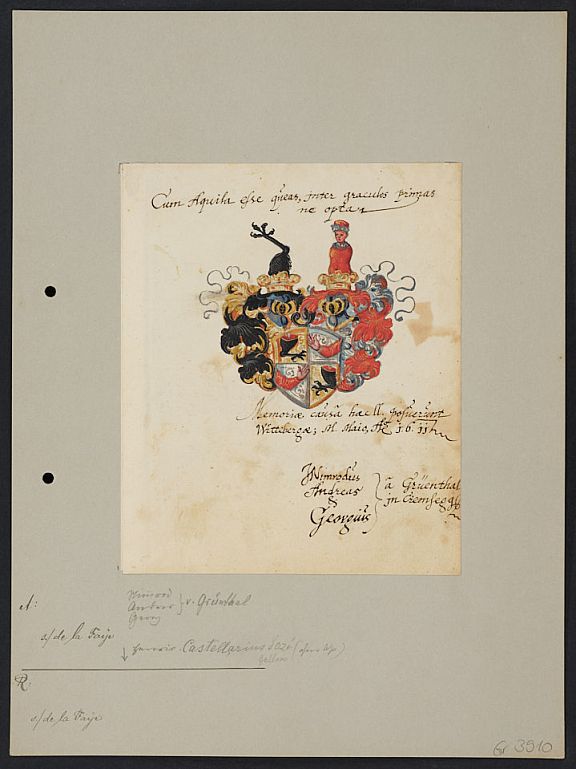 Cum Aquila esse queas, inter graculos primas
ne opta
Memoriæ causâ hæc ll. posuerunt
Wittebergæ; M. Maio, Aº 1611
Nimrodus
Andreas
Georgius
à Grüenthal
in Cremsegg
A:
Nimrod
Andreas
Georg
v. Grünthal
s/de la Faije
Castellarius
R:
s/de la Faije
3910